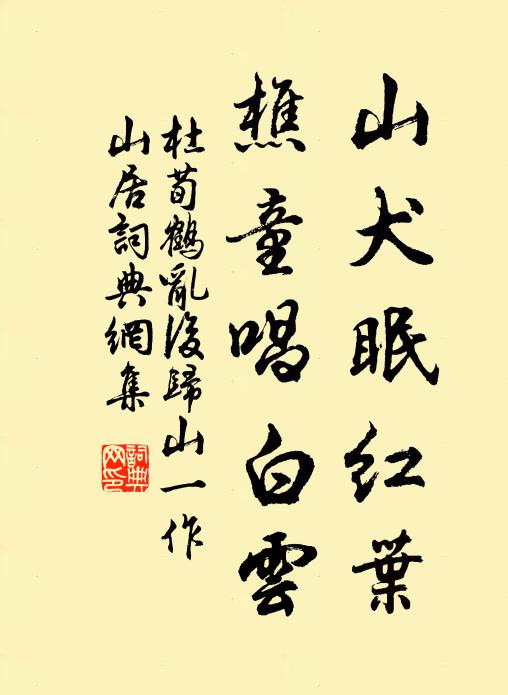 山犬眠紅葉
樵童唱白雲
杜荀鶴亂後歸山一作
山居詞典網集
詞典网印